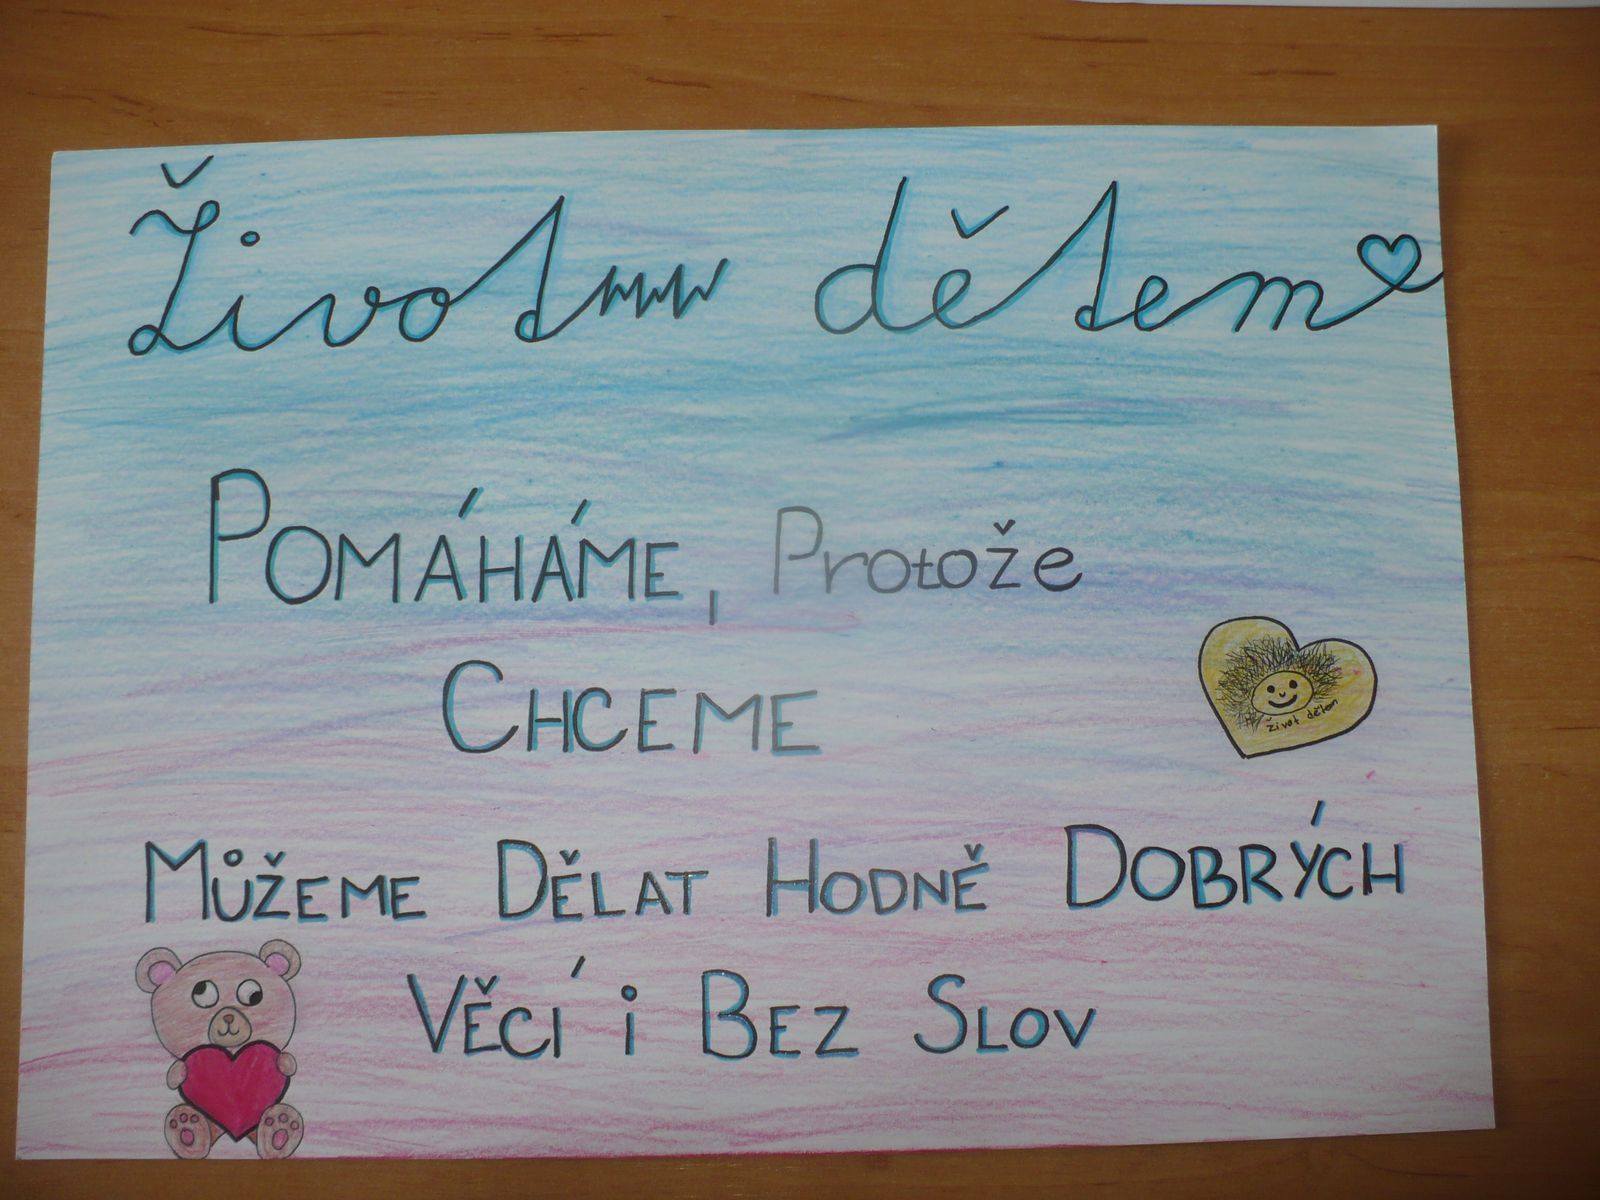 Život dětem
POMÁHÁME, Protože
CHCEME
život dětem
MŮŽEME DĚLAT HODNĚ DOBRÝCH
VĚCÍ i BEZ SLOV